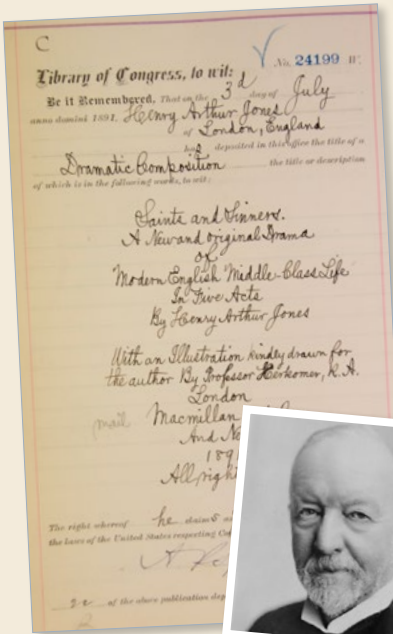 C
No. 24199 W.
Library of Congress, to wit:
Be it Remembered, That on the 3d day of July
anno domini 1891, Henry Arthur Jones
of London, England
has deposited in this office the title of a
Dramatic Composition the title or description
of which is in the following words, to wit:
Saints and Sinners.
A New and original Drama
of
Modern English Middle-Class Life
In Five Acts
By Henry Arthur Jones
With an Illustration kindly drawn for
the author By Professor Herkomer, R.A.
London
mail Macmillan
And
189
All righ
The right whereof he claims
the laws of the United States respecting
of the above publication dep